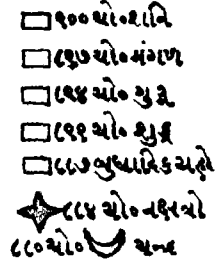 ૯૦૦ યો૦ શનિ
૮૯૭ યો૦ મંગળ
૮૯૪ યો૦ ગુરૂ
૮૯૧ યો૦ શુક્ર
૮૮૭ બુધાદિક ગ્રહો
૮૮૪ યો૦ નક્ષત્રો
૮૮૦ યો૦ ચન્દ્ર